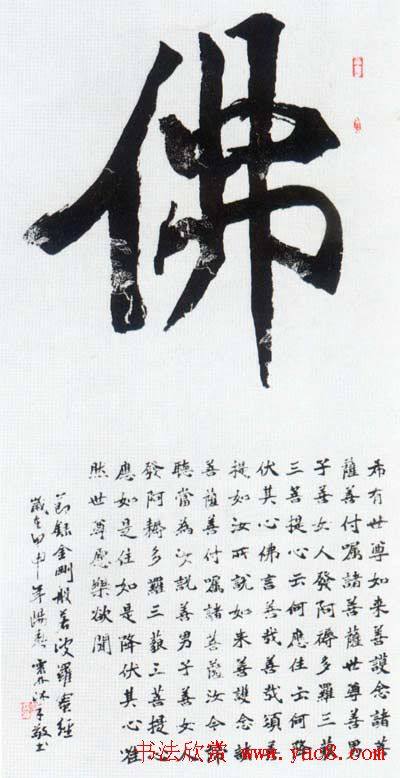 佛
希有世尊如来善護念諸菩
薩善付嘱諸菩薩世尊善男
子善女人發阿耨多羅三藐
三菩提心云何應住云何降
伏其心佛言善哉善哉須菩
提如汝所說如来善護念諸
菩薩善付嘱諸菩薩汝今諦
聽當為汝說善男子善女人
發阿耨多羅三藐三菩提心
應如是住如是降伏其心唯
然世尊愿樂欲聞
節録金剛般若波羅蜜經
歲在甲申年 沐手敬书
书法欣赏 www.yac8.com